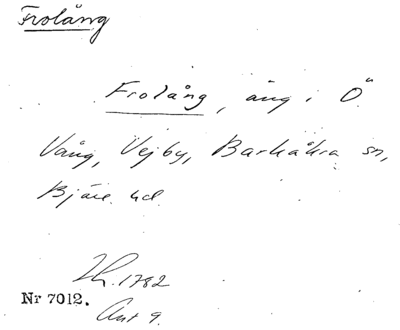 Frolång
Frolång, äng i Ö.
Vång, Vejby, Barkåkra sn,
Bjäre hd.
Lr. 1782
Nr 7012.
Akt 9.